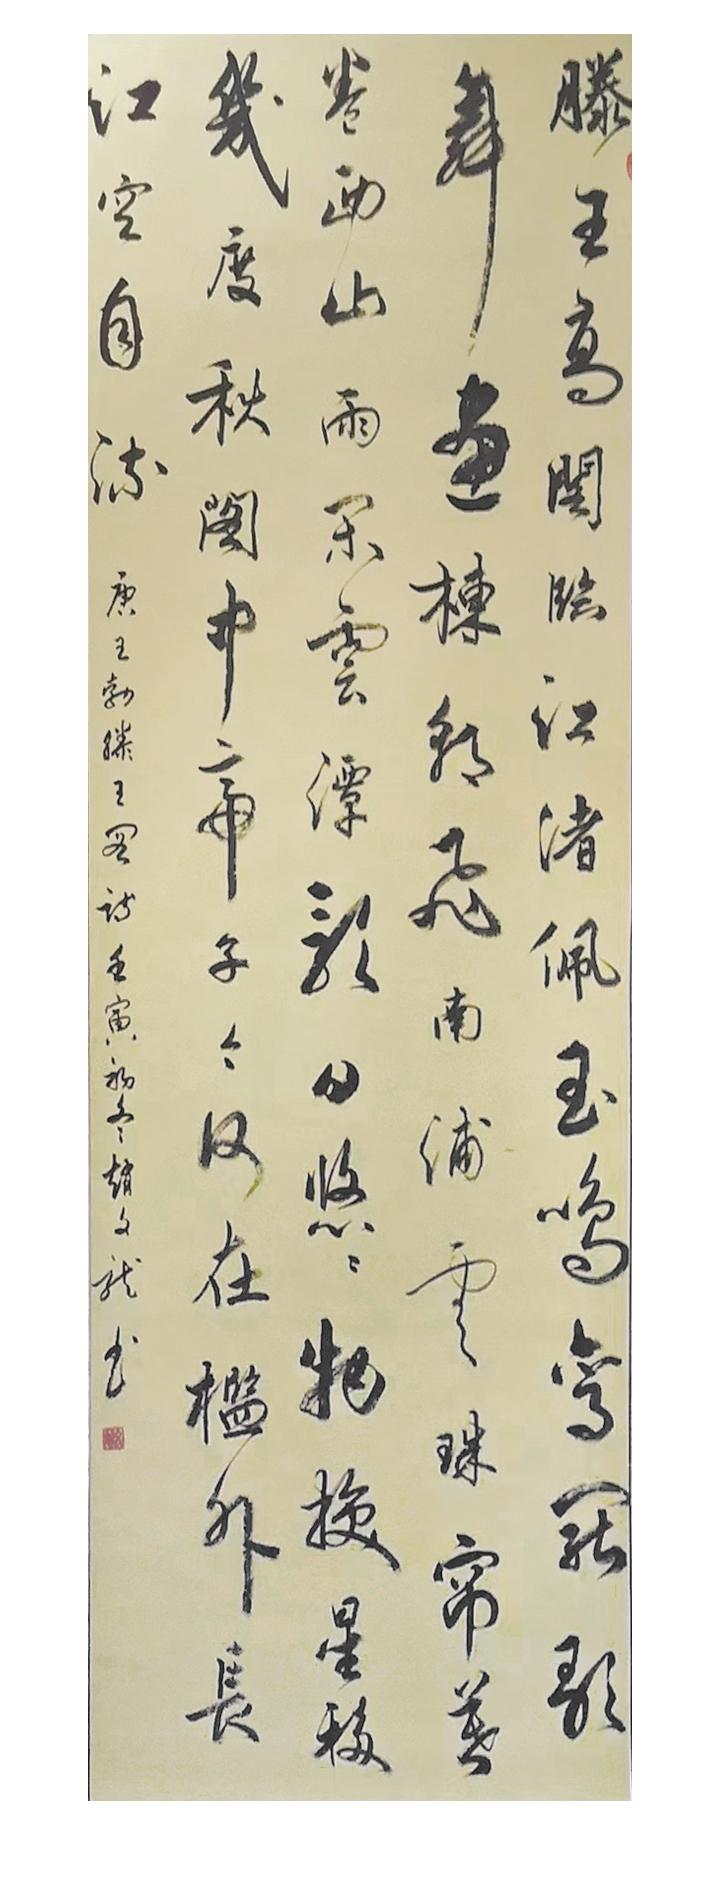 滕王高閣臨江渚佩玉鳴鸞罷歌
舞畫棟朝飛南浦雲珠帘暮
卷西山雨閑雲潭影日悠々物換星移
幾度秋閣中帝子今何在檻外長
江空自流
唐王勃滕王閣詩壬寅初冬趙文龍书